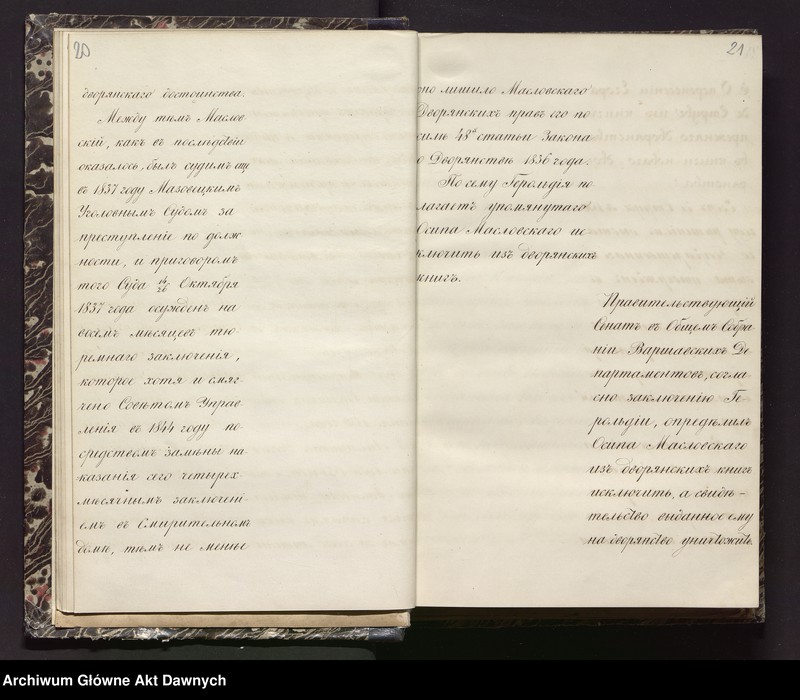 20
дворянскаго достоинства.
Между тѣмъ Маслов-
скій, какъ въ послѣдствіи
оказалось, былъ судимъ еще
въ 1837 году Мазовецкимъ
Уголовнымъ Судомъ за
преступленіе по долж-
ности, и приговоромъ
того Суда 14/26 Октября
1837 года осужденъ на
восемь мѣсяцевъ тю-
ремнаго заключенія,
которое хотя и смяг-
чено Совѣтомъ Управ-
ленія въ 1844 году по-
средствомъ замѣны на-
казанія сего четырех-
мѣсячнымъ заключені-
емъ въ Смирительномъ
домѣ, тѣмъ не менѣе
21
оно лишило Масловскаго
Дворянскихъ правъ его по
силѣ 48й статьи Закона
о Дворянствѣ 1836 года.
По сему Герольдія по-
лагаетъ упомянутаго
Осипа Масловскаго ис-
ключить изъ дворянскихъ
книгъ.
Правительствующій
Сенатъ въ Общемъ Собра-
ніи Варшавскихъ Де-
партаментовъ, согла-
сно заключенію Ге-
рольдіи, опредѣлилъ
Осипа Масловскаго
изъ дворянскихъ книгъ
исключить, а свидѣ-
тельство выданное ему
на дворянство уничтожить.
Archiwum Główne Akt Dawnych